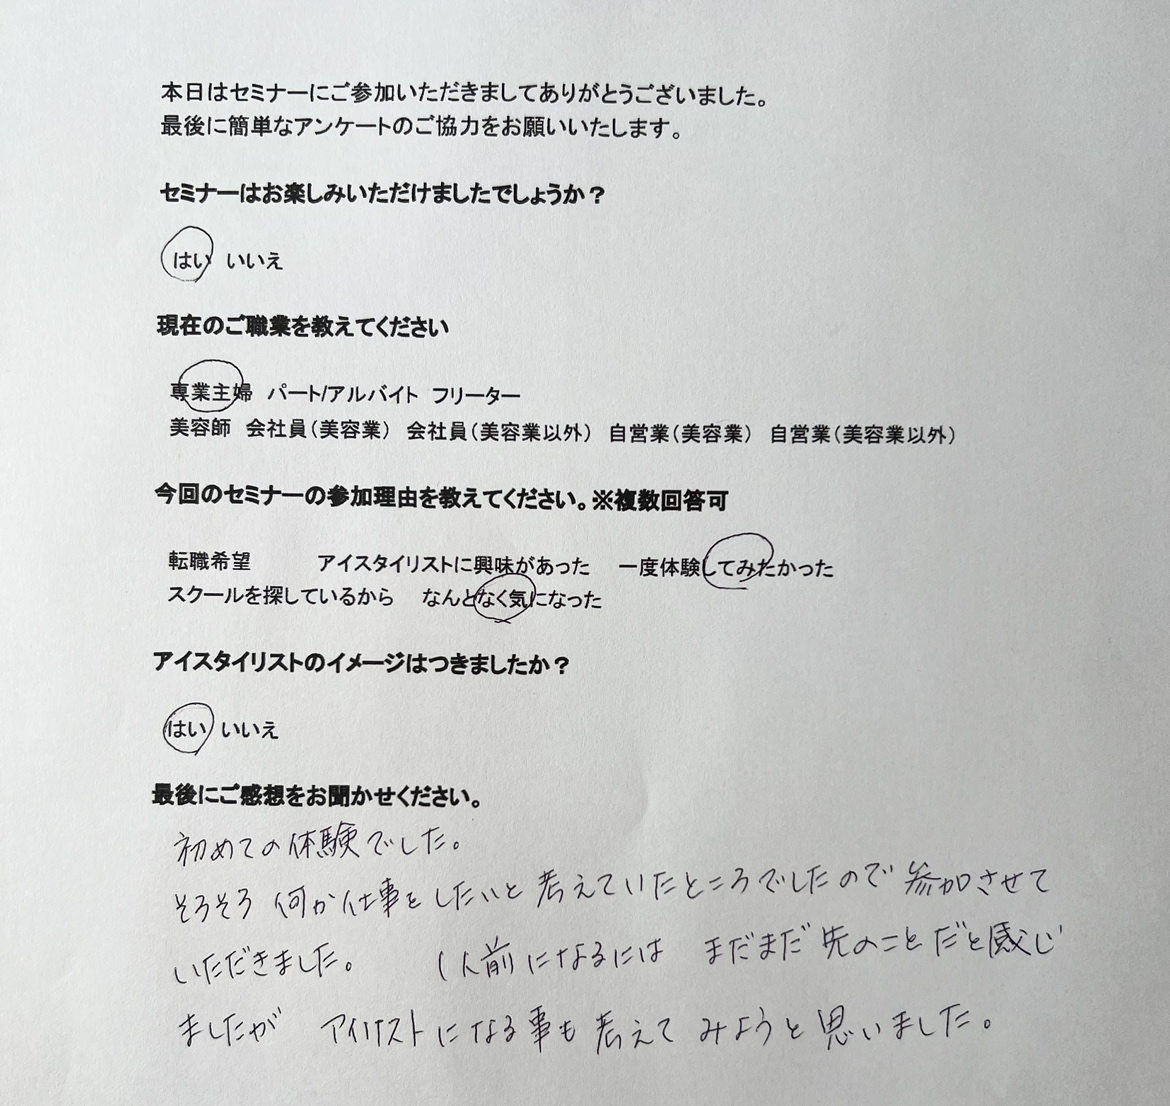 本日はセミナーにご参加いただきましてありがとうございました。
最後に簡単なアンケートのご協力をお願いいたします。
セミナーはお楽しみいただけましたでしょうか？
はい いいえ
現在のご職業を教えてください
専業主婦 パート/アルバイト フリーター
美容師 会社員（美容業） 会社員（美容業以外） 自営業（美容業） 自営業（美容業以外）
今回のセミナーの参加理由を教えてください。※複数回答可
転職希望 アイスタイリストに興味があった 一度体験してみたかった
スクールを探しているから なんとなく気になった
アイスタイリストのイメージはつきましたか？
はい いいえ
最後にご感想をお聞かせください。
初めての体験でした。
そろそろ 何か仕事をしたいと考えていたところでしたので参加させて
いただきました。 1人前になるには まだまだ先のことだと感じ
ましたが アイリストになる事も考えてみようと思いました。